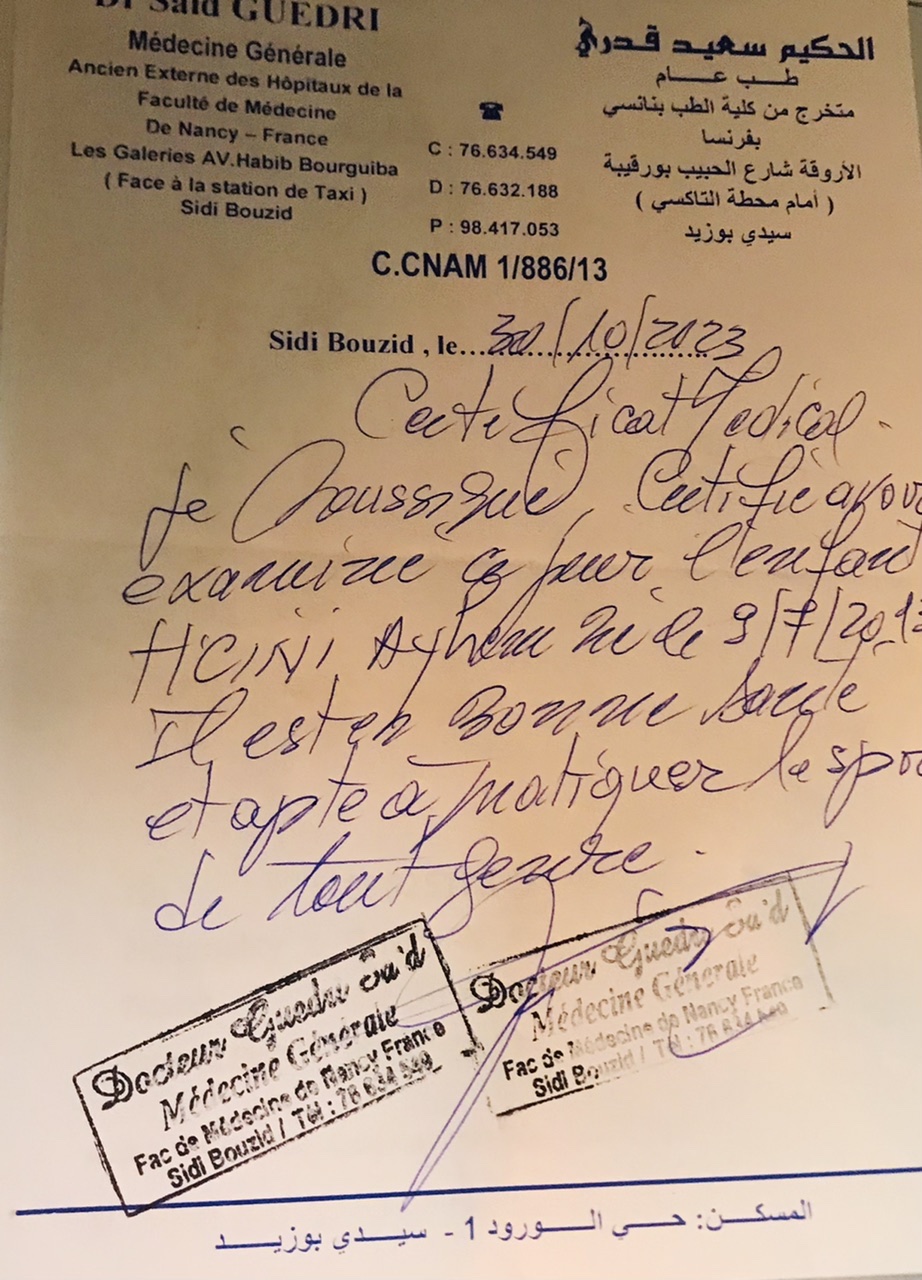 Dr Said GUEDRI
Médecine Générale
Ancien Externe des Hôpitaux de la
Faculté de Médecine
De Nancy – France
Les Galeries AV.Habib Bourguiba
( Face à la station de Taxi )
Sidi Bouzid
☎
C : 76.634.549
D : 76.632.188
P : 98.417.053
الحكيم سعيد قدري
طب عام
متخرج من كلية الطب بنانسي
بفرنسا
الأروقة شارع الحبيب بورقيبة
( أمام محطة التاكسي )
سيدي بوزيد
C.CNAM 1/886/13
Sidi Bouzid , le...30/10/2023
Certificat Medical.
Je Soussigné, Certifie avoi
examiné ce jour l'enfant
HCINI Ayhem né le 9/7/2013
Il est en Bonne santé
et apte à pratiquer le spo
de tout genre.
Docteur Guedri Sa'd
Médecine Générale
Fac de Médecine de Nancy France
Sidi Bouzid / Tél : 76 634 549
Docteur Guedri Sa'd
Médecine Générale
Fac de Médecine de Nancy France
Sidi Bouzid / Tél : 76 634 549
المسكن: حي الورود 1 - سيدي بوزيد